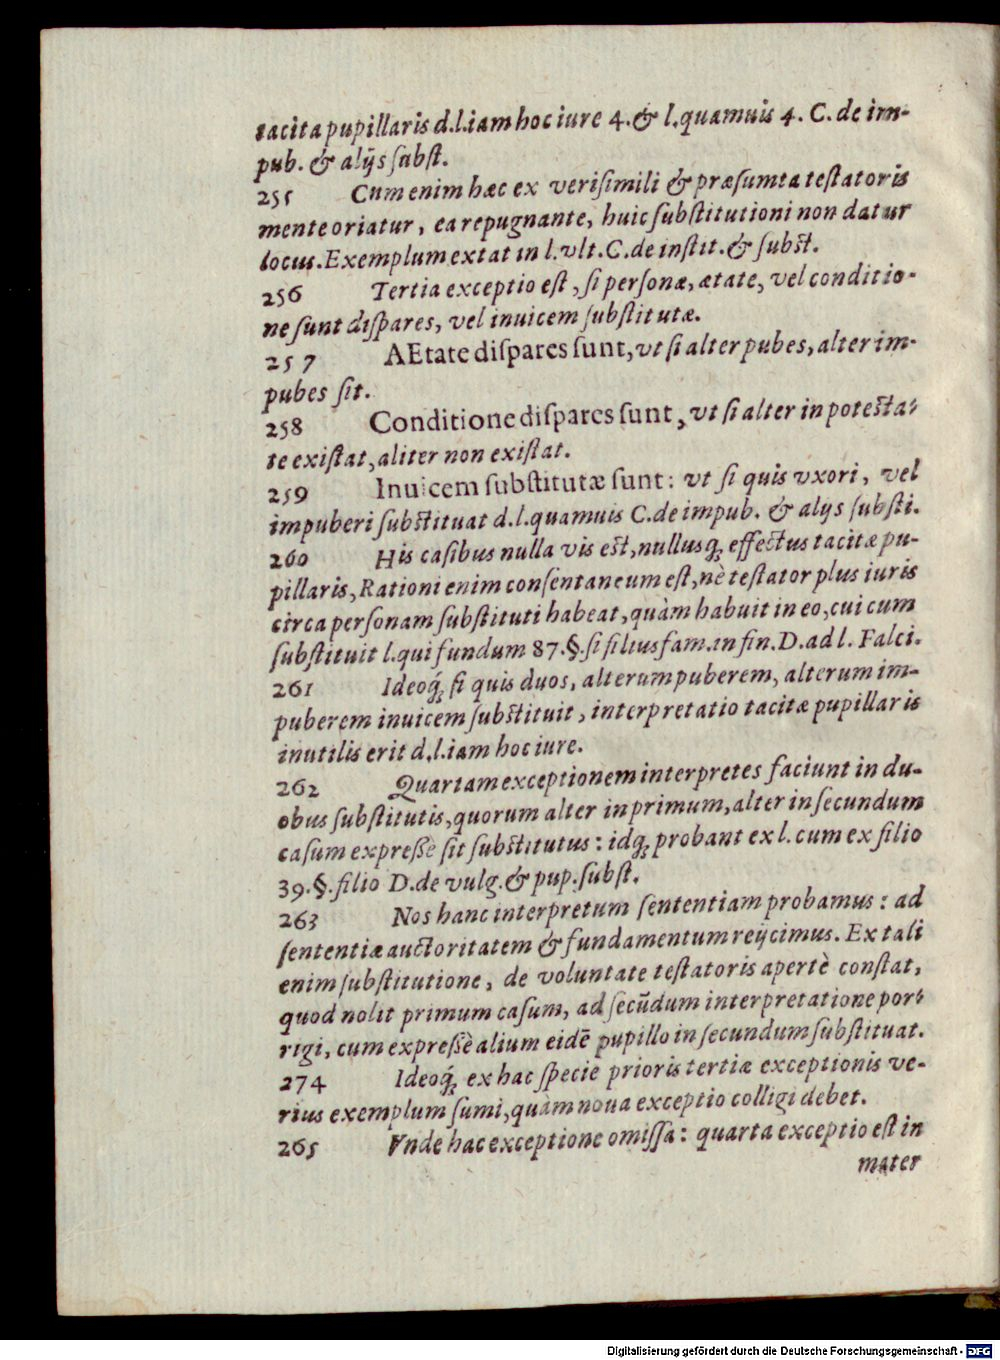 tacita pupillaris d.l.iam hoc iure 4. & l.quamuis 4. C. de im-
pub. & alijs ſubſt.
255 Cum enim hæc ex veriſimili & præſumta teſtatoris
mente oriatur, ea repugnante, huic ſubſtitutioni non datur
locus. Exemplum extat in l.vlt.C.de inſtit.& ſubſt.
256 Tertia exceptio eſt, ſi perſonæ, ætate, vel conditio-
ne ſunt diſpares, vel inuicem ſubſtitutæ.
257 AEtate diſpares ſunt, vt ſi alter pubes, alter im-
pubes ſit.
258 Conditione diſpares ſunt, vt ſi alter in poteſta-
te exiſtat, aliter non exiſtat.
259 Inuicem ſubſtitutæ ſunt: vt ſi quis vxori, vel
impuberi ſubſtituat d.l.quamuis C.de impub. & alijs ſubſti.
260 His caſibus nulla vis eſt, nullusq; effectus tacitæ pu-
pillaris, Rationi enim conſentaneum eſt, nè teſtator plus iuris
circa perſonam ſubſtituti habeat, quàm habuit in eo, cui cum
ſubſtituit l.qui fundum 87.§.ſi filiusfam.in fin.D.ad l. Falci.
261 Ideoq́; ſi quis duos, alterum puberem, alterum im-
puberem inuicem ſubſtituit, interpretatio tacitæ pupillaris
inutilis erit d.l.iam hoc iure.
262 Quartam exceptionem interpretes faciunt in du-
obus ſubſtitutis, quorum alter in primum, alter in ſecundum
caſum expreſſè ſit ſubſtitutus: idq; probant ex l. cum ex filio
39.§.filio D.de vulg.& pup.ſubſt.
263 Nos hanc interpretum ſententiam probamus: ad
ſententiæ auctoritatem & fundamentum reijcimus. Ex tali
enim ſubſtitutione, de voluntate teſtatoris apertè conſtat,
quod nolit primum caſum, ad ſecūdum interpretatione por-
rigi, cum expreſſè alium eidē pupillo in ſecundum ſubſtituat.
274 Ideoq́; ex hac ſpecie prioris tertiæ exceptionis ve-
rius exemplum ſumi, quàm noua exceptio colligi debet.
265 Vnde hac exceptione omiſſa: quarta exceptio eſt in
mater
Digitalisierung gefördert durch die Deutsche Forschungsgemeinschaft - DFG